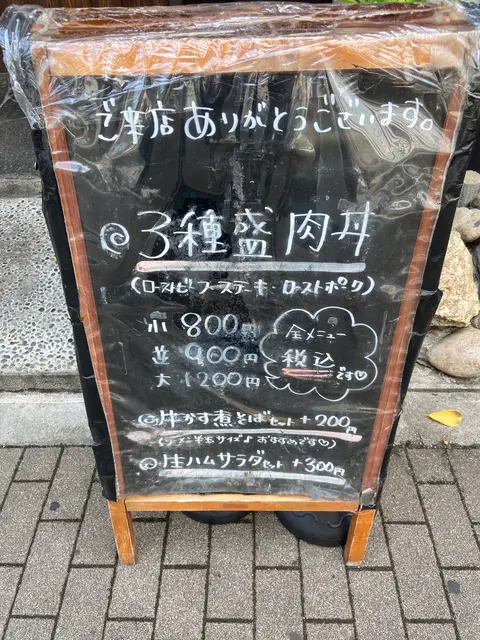 ご来店ありがとうございます。
◎3種盛肉丼
(ローストビーフ・ステーキ・ローストポーク)
小 800円
並 900円
大 1200円
全メニュー
税込
です♡
◎牛かす煮そばセット +200円
(ラーメン半玉サイズ♪おすすめです♡)
◎生ハムサラダセット +300円